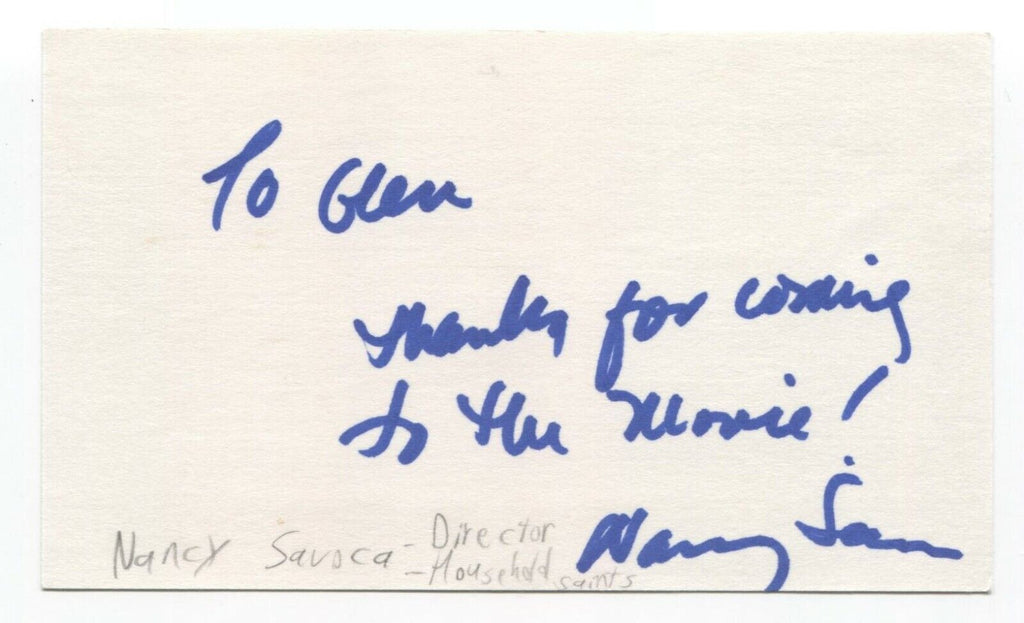 To Glen
thanks for coming
to the Movie!
Nancy
Nancy Savoca - Director
- Household saints